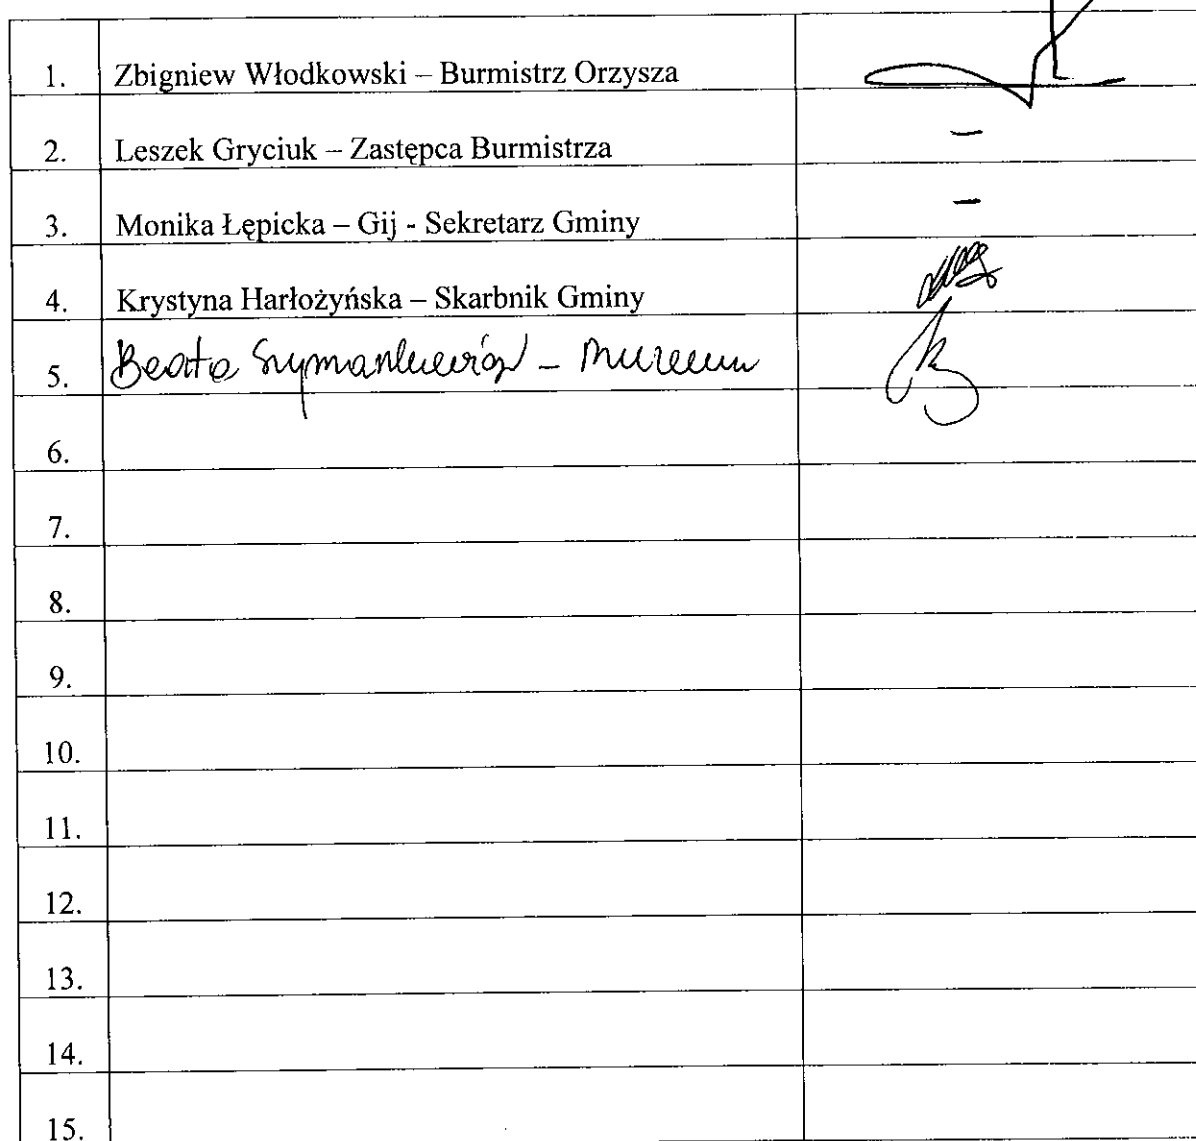 1. Zbigniew Włodkowski – Burmistrz Orzysza
2. Leszek Gryciuk – Zastępca Burmistrza –
3. Monika Łępicka – Gij - Sekretarz Gminy –
4. Krystyna Harłożyńska – Skarbnik Gminy
5. Beata Szymankiewicz – Muzeum
6.
7.
8.
9.
10.
11.
12.
13.
14.
15.